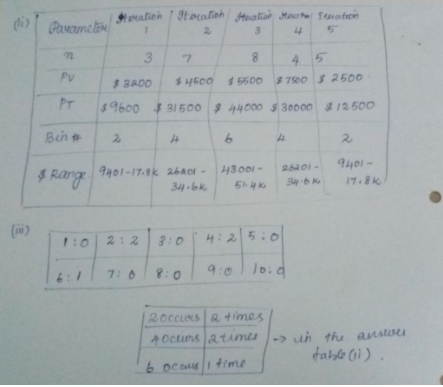 (ii)
Parameter Iteration 1 Iteration 2 Iteration 3 Iteration 4 Iteration 5
n 3 7 8 4 5
PV $3200 $4500 $5500 $7500 $2500
PT $9600 $31500 $44000 $30000 $12500
Bin # 2 4 6 4 2
$ Range 9401-17.8K 26201-34.6K 43001-51.4K 26201-34.6K 9401-17.8K
(iii)
1:0 2:2 3:0 4:2 5:0
6:1 7:0 8:0 9:0 10:0
2 occurs 2 times
4 occurs 2 times → in the answer
6 occurs 1 time table (ii).